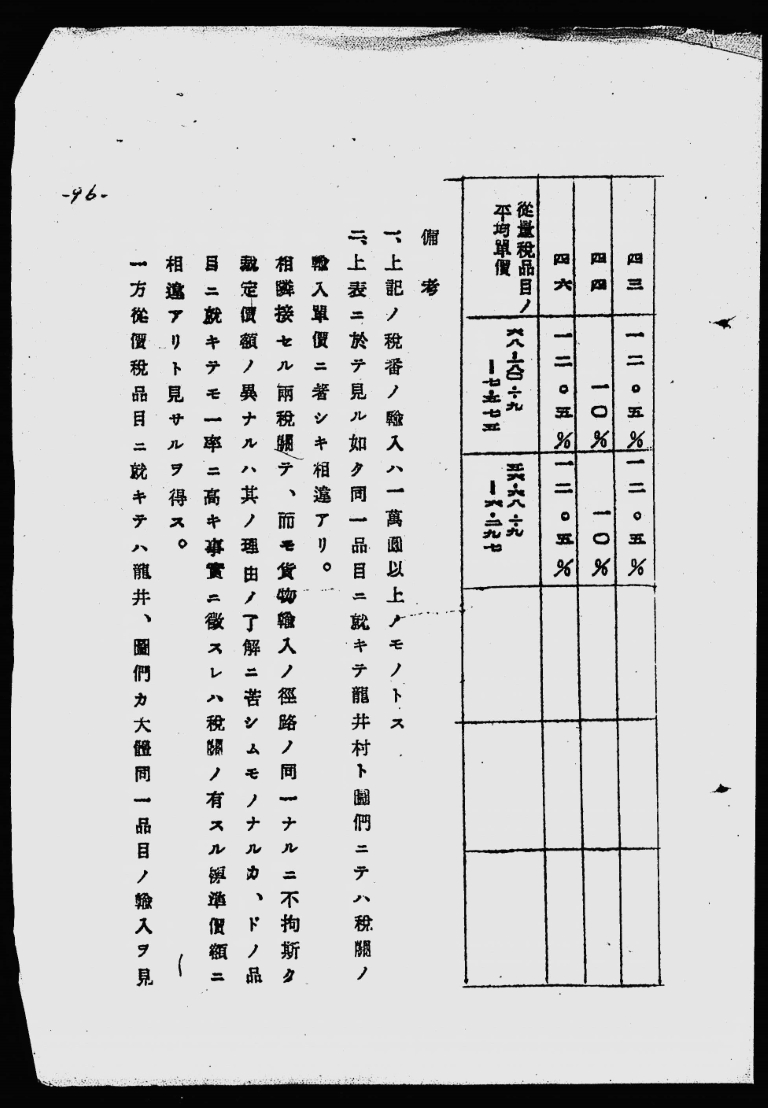 四三 一二。五% 一二。五%
四四 一〇% 一〇%
四六 一二。五% 一二。五%
從量税品目ノ
平均單價
備考
一、上記ノ税番ノ輸入ハ一萬圓以上ノモノトス
二、上表ニ於テ見ル如ク同一品目ニ就キテ龍井村ト圖們ニテハ税關ノ
輸入單價ニ著シキ相違アリ。
相隣接セル兩税關テ、而モ貨物輸入ノ徑路ノ同一ナルニ不拘斯ク
裁定價額ノ異ナルハ其ノ理由ノ了解ニ苦シムモノナルカ、ドノ品
目ニ就キテモ一率ニ高キ事實ニ徵スレハ税關ノ有スル標準價額ニ
相違アリト見サルヲ得ス。
一方從價税品目ニ就キテハ龍井、圖們カ大體同一品目ノ輸入ヲ見
-96-